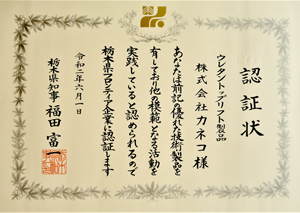 認証状
ウレタントップリフト製品
株式会社カネコ様
あなたは前記の優れた技術製品を
有しており他の模範となる活動を
実践していると認められるので
栃木県フロンティア企業に認証します
令和二年六月一日
栃木県知事 福田富一